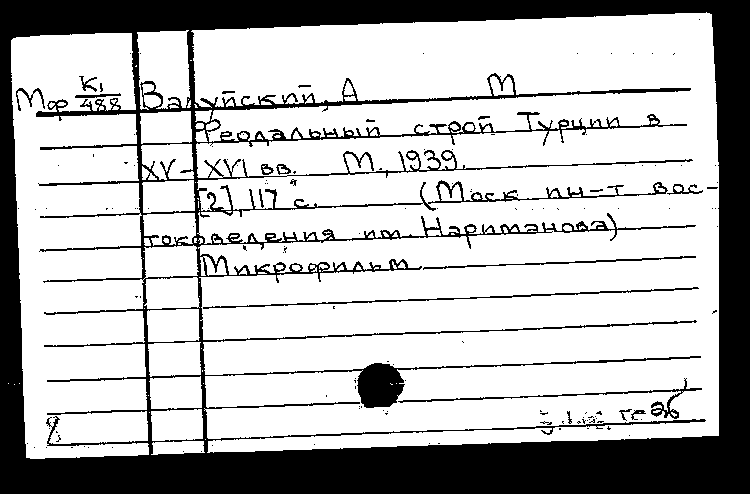 Мф К1/488 Валуйский, А М
Феодальный строй Турции в
XV – XVI вв. М., 1939.
[2], 117 с. (Моск ин-т вос-
токоведения им. Нариманова)
Микрофильм
8